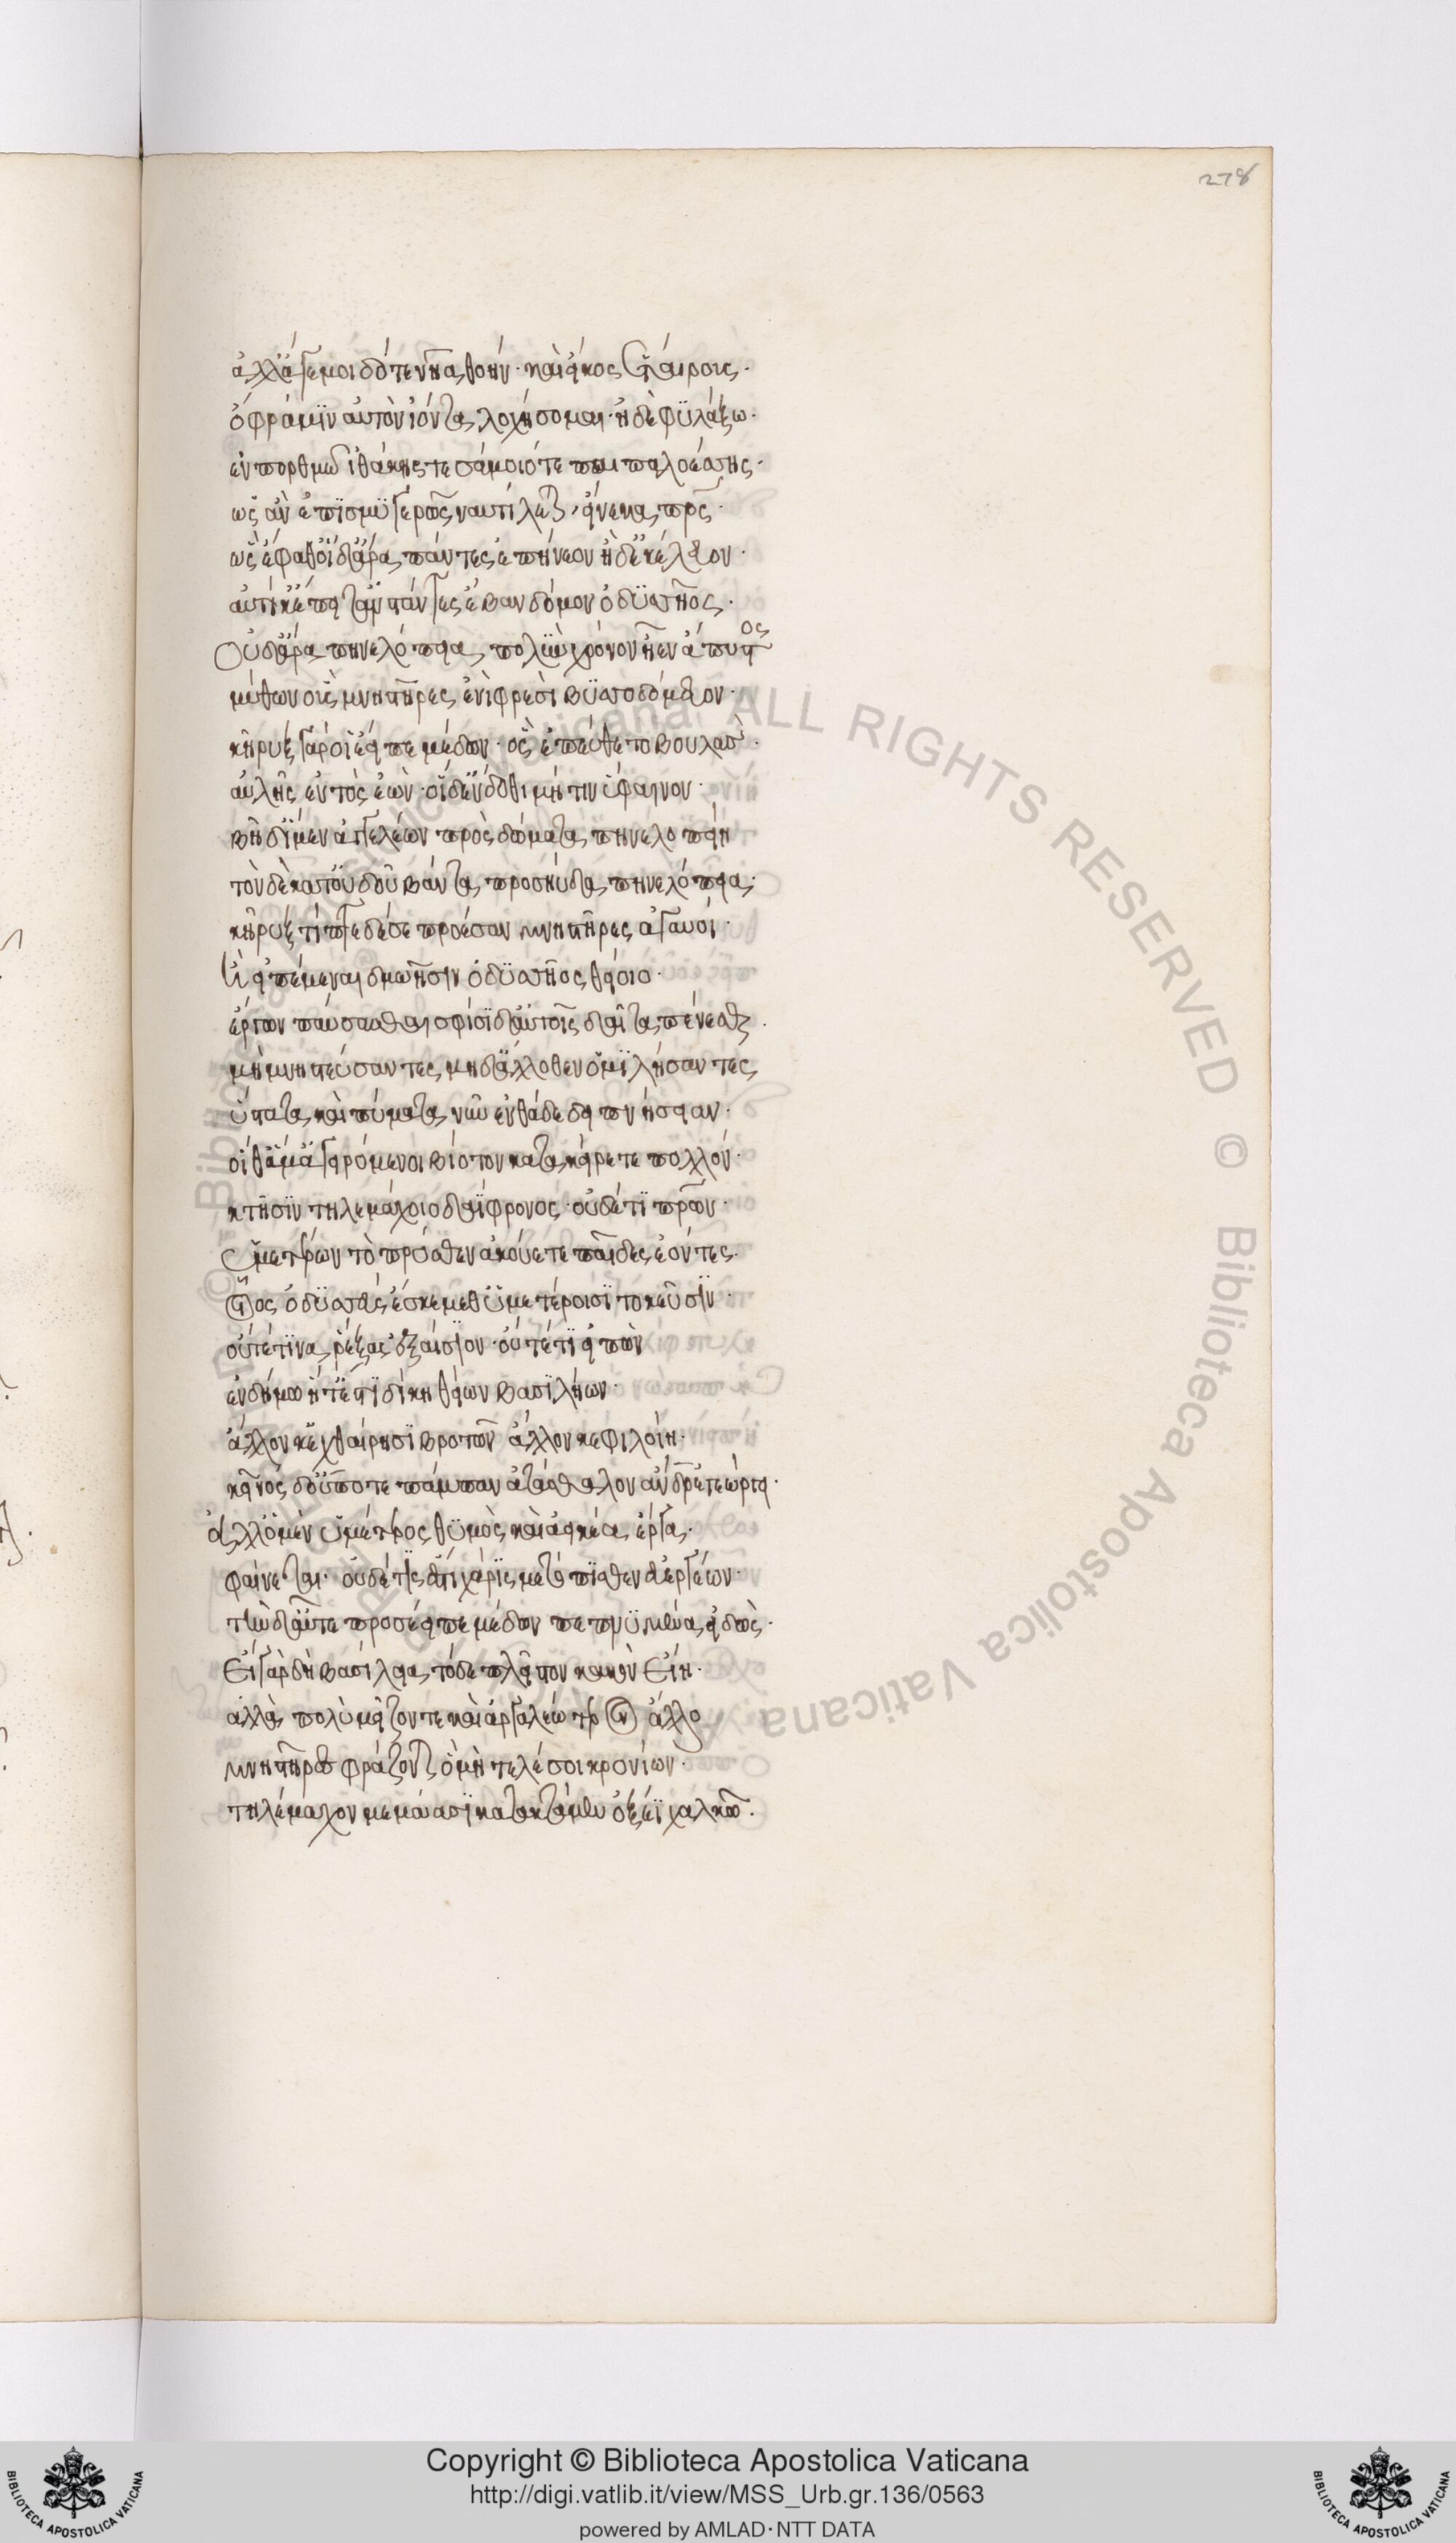 278
ἀλλ' ἄγε μοι δότε νῆα θοὴν καὶ εἴκοσ' ἑταίρους·
ὄφρά μϊν αὐτὸν ἰόντα λοχήσομαι ἠδὲ φϋλάξω·
ἐν πορθμῶ ἰθάκης τε σάμοιό τε παιπαλοέσσης·
ὡς ἂν ἐπϊσμϋγερῶς ναυτίλεται εἵνεκα πρς·
ὣς ἔφαθ' οἱ δ' ἄρα πάντες ἐπήνεον ἠδ' ἐκέλευον·
αὐτίκ' ἔπειτ' ἀνστάντες ἔβαν δόμον ὀδϋσσῆος·
Οὐδ' ἄρα πηνελόπεια πολὺν χρόνον ἦεν ἄπυστος
μύθων οὓς μνηστῆρες ἐνὶ φρεσὶ βϋσσοδόμευον·
κῆρυξ γάρ οἱ ἔειπε μέδων· ὃς ἐπεύθετο βουλὰς·
αὐλῆς ἐντὸς ἐὼν· οἱ δ' ἔνδοθι μῆτιν ὕφαινον·
βῆ δ' ἴμεν ἀγγελέων πρὸς δώματα πηνελοπείη
τὸν δὲ κατ' οὐδοῦ βάντα προσηύδα πηνελόπεια·
κῆρυξ τίπτε δέ σε πρόεσαν μνηστῆρες ἀγαυοί·
ἢ εἰπέμεναι δμωῆσιν ὀδϋσσῆος θείοιο·
ἔργων παύσασθαι σφίσϊ δ' αὐτοῖς δαῖτα πένεσθαι·
μὴ μνηστεύσαντες μηδ' ἄλλοθεν ὁμϊλήσαντες
ὕστατα καὶ πύματα νῦν ἐνθάδε δειπνήσειαν·
οἳ θάμ' ἀγειρόμενοι βίοτον κατακείρετε πολλόν·
κτῆσϊν τηλεμάχοιο δαΐφρονος· οὐδέ τϊ πρῶν·
ὑμετέρων τὸ πρόσθεν ἀκούετε παῖδες ἐόντες·
οἷος ὀδϋσσεὺς ἔσκε μεθ' ὑμετέροισϊ τοκεῦσϊν·
οὔτέ τϊνα ῥέξας ἐξαίσϊον· οὔτέ τϊ εἰπὼν
ἐν δήμω ἥ τ' ἐστὶ δίκη θείων βασϊλήων·
ἄλλον κ' ἐχθαίρησϊ βροτῶν ἄλλον κε φιλοίη·
κεῖνος δ' οὔποτε πάμπαν ἀτάσθαλον ἄνδρα ἐώργει·
ἀλλ' ὁ μὲν ὑμέτερος θϋμὸς καὶ ἀεικέα ἔργα
φαίνεται· οὐδέ τϊς ἐστὶ χάρϊς μετόπϊσθεν εὐεργέων·
τὴν δ' αὖτε προσέειπε μέδων πεπνϋμένα εἰδὼς·
Εἰ γὰρ δὴ βασίλεια τόδε πλεῖστον κακὸν εἴη·
ἀλλὰ πολὺ μεῖζόν τε καὶ ἀργαλεώτερον ἄλλο
μνηστῆρες φράζονται ὃ μὴ τελέσοι κρονίων·
τηλέμαχον μεμάασϊ κατακτάμεν ὀξέϊ χαλκῶ·
Copyright © Biblioteca Apostolica Vaticana
http://digi.vatlib.it/view/MSS_Urb.gr.136/0563
powered by AMLAD·NTT DATA